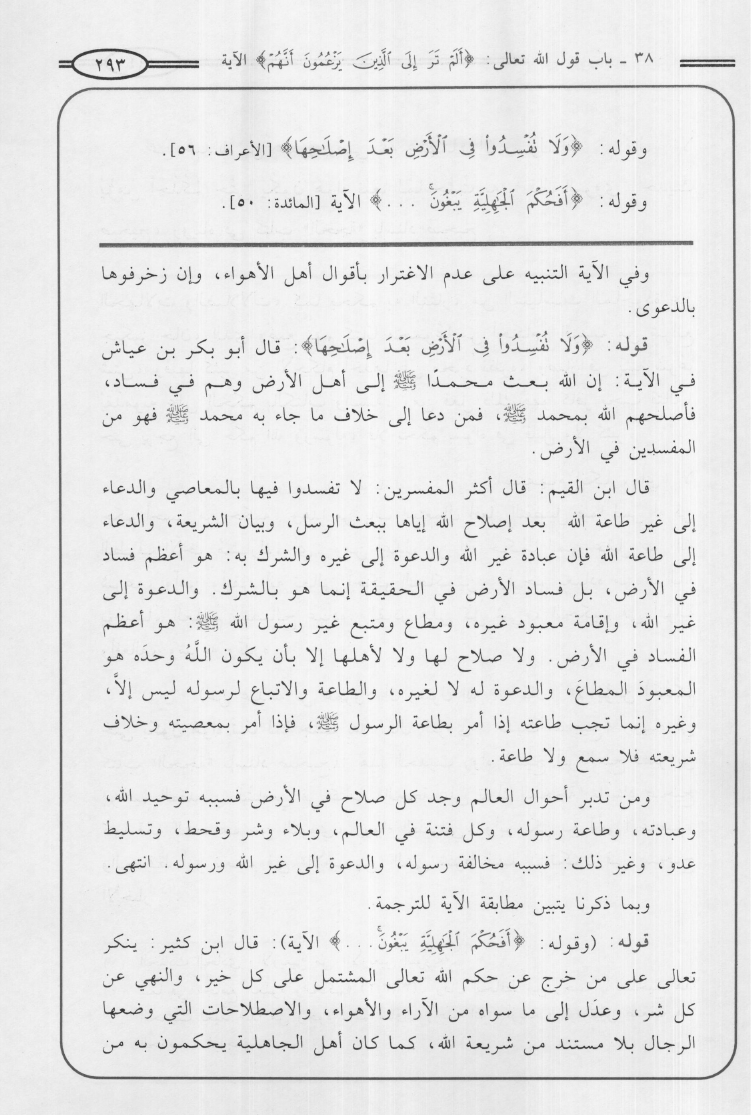 ٣٨ ـ باب قول الله تعالى: ﴿أَلَمْ تَرَ إِلَى ٱلَّذِينَ يَزْعُمُونَ أَنَّهُمْ﴾ الآية
٢٩٣
وقوله: ﴿وَلَا نُفْسِدُوا۟ فِى ٱلْأَرْضِ بَعْدَ إِصْلَـٰحِهَا﴾ [الأعراف: ٥٦].
وقوله: ﴿أَفَحُكْمَ ٱلْجَـٰهِلِيَّةِ يَبْغُونَۚ ...﴾ الآية [المائدة: ٥٠].
وفي الآية التنبيه على عدم الاغترار بأقوال أهل الأهواء، وإن زخرفوها
بالدعوى.
قوله: ﴿وَلَا نُفْسِدُوا۟ فِى ٱلْأَرْضِ بَعْدَ إِصْلَـٰحِهَا﴾: قال أبو بكر بن عياش
في الآية: إن الله بعث محمدًا ﷺ إلى أهل الأرض وهم في فساد،
فأصلحهم الله بمحمد ﷺ، فمن دعا إلى خلاف ما جاء به محمد ﷺ فهو من
المفسدين في الأرض.
قال ابن القيم: قال أكثر المفسرين: لا تفسدوا فيها بالمعاصي والدعاء
إلى غير طاعة الله بعد إصلاح الله إياها ببعث الرسل، وبيان الشريعة، والدعاء
إلى طاعة الله فإن عبادة غير الله والدعوة إلى غيره والشرك به: هو أعظم فساد
في الأرض، بل فساد الأرض في الحقيقة إنما هو بالشرك. والدعوة إلى
غير الله، وإقامة معبود غيره، ومطاع ومتبع غير رسول الله ﷺ: هو أعظم
الفساد في الأرض. ولا صلاح لها ولا لأهلها إلا بأن يكون اللَّهُ وحدَه هو
المعبودَ المطاعَ، والدعوة له لا لغيره، والطاعة والاتباع لرسوله ليس إلاَّ،
وغيره إنما تجب طاعته إذا أمر بطاعة الرسول ﷺ، فإذا أمر بمعصيته وخلاف
شريعته فلا سمع ولا طاعة.
ومن تدبر أحوال العالم وجد كل صلاح في الأرض فسببه توحيد الله،
وعبادته، وطاعة رسوله، وكل فتنة في العالم، وبلاء وشر وقحط، وتسليط
عدو، وغير ذلك: فسببه مخالفة رسوله، والدعوة إلى غير الله ورسوله. انتهى.
وبما ذكرنا يتبين مطابقة الآية للترجمة.
قوله: (وقوله: ﴿أَفَحُكْمَ ٱلْجَـٰهِلِيَّةِ يَبْغُونَۚ...﴾ الآية): قال ابن كثير: ينكر
تعالى على من خرج عن حكم الله تعالى المشتمل على كل خير، والنهي عن
كل شر، وعدَل إلى ما سواه من الآراء والأهواء، والاصطلاحات التي وضعها
الرجال بلا مستند من شريعة الله، كما كان أهل الجاهلية يحكمون به من